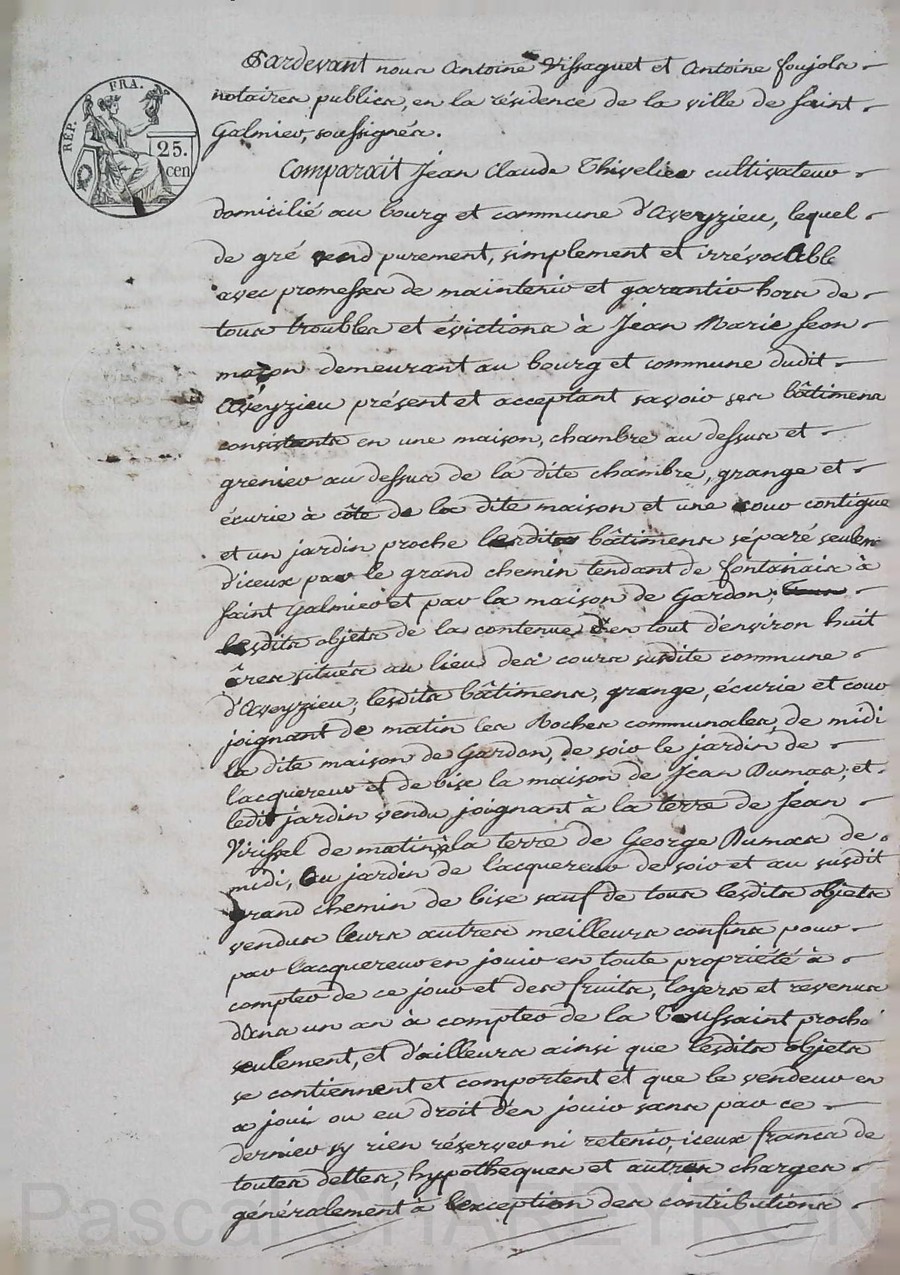 RÉP. FRA.
25.
cen
Pardevant nous Antoine Vissaguet et Antoine foujols
notaires publics, en la résidence de la ville de Saint
Galmier, soussignés.
Comparait Jean Claude Thivelier cultivateur
domicilié au bourg et commune d'Aveyzieu, lequel
de gré vend purement, simplement et irrévocable
avec promesses de maintenir et garantir hors de
tous troubles et évictions à Jean Marie
maçon demeurant au bourg et commune dudit
Aveyzieu présent et acceptant savoir ses bâtimens
consistants en une maison, chambre au dessus et
grenier au dessus de la dite chambre, grange et
écurie à côté de la dite maison et une cour contigue
et un jardin proche lesdits bâtimens séparé seulem
d'iceux par le grand chemin tendant de fontanais à
Saint Galmier et par la maison de Gardon,
lesdits objets de la contenue en tout d'environ huit
ares situés au lieu des cours susdite commune
d'Aveyzieu; lesdits bâtimens, grange, écurie et cour
joignant de matin les Rochers communales, de midi
la dite maison de Gardon, de soir le jardin de
l'acquereur et de bise la maison de Jean Dumas; et
ledit jardin vendu joignant à la terre de Jean
Virissel de matin, à la terre de George Dumas de
midi, au jardin de l'acquereur de soir et au susdit
grand chemin de bise sauf de tous lesdits objets
vendus leurs autres meilleurs confins pour
par l'acquereur en jouir en toute propriété à
compter de ce jour et des fruits, loyers et revenus
dans un an à compter de la Toussaint proche
seulement, et d'ailleurs ainsi que lesdits objets
se contiennent et comportent et que le vendeur en
a joui ou eu droit d'en jouir sans par ce
dernier sy rien réserver ni retenir, iceux francs de
toutes dettes, hypotheques et autres charges
généralement à lexception des contributions
Pascal CHAREYRON